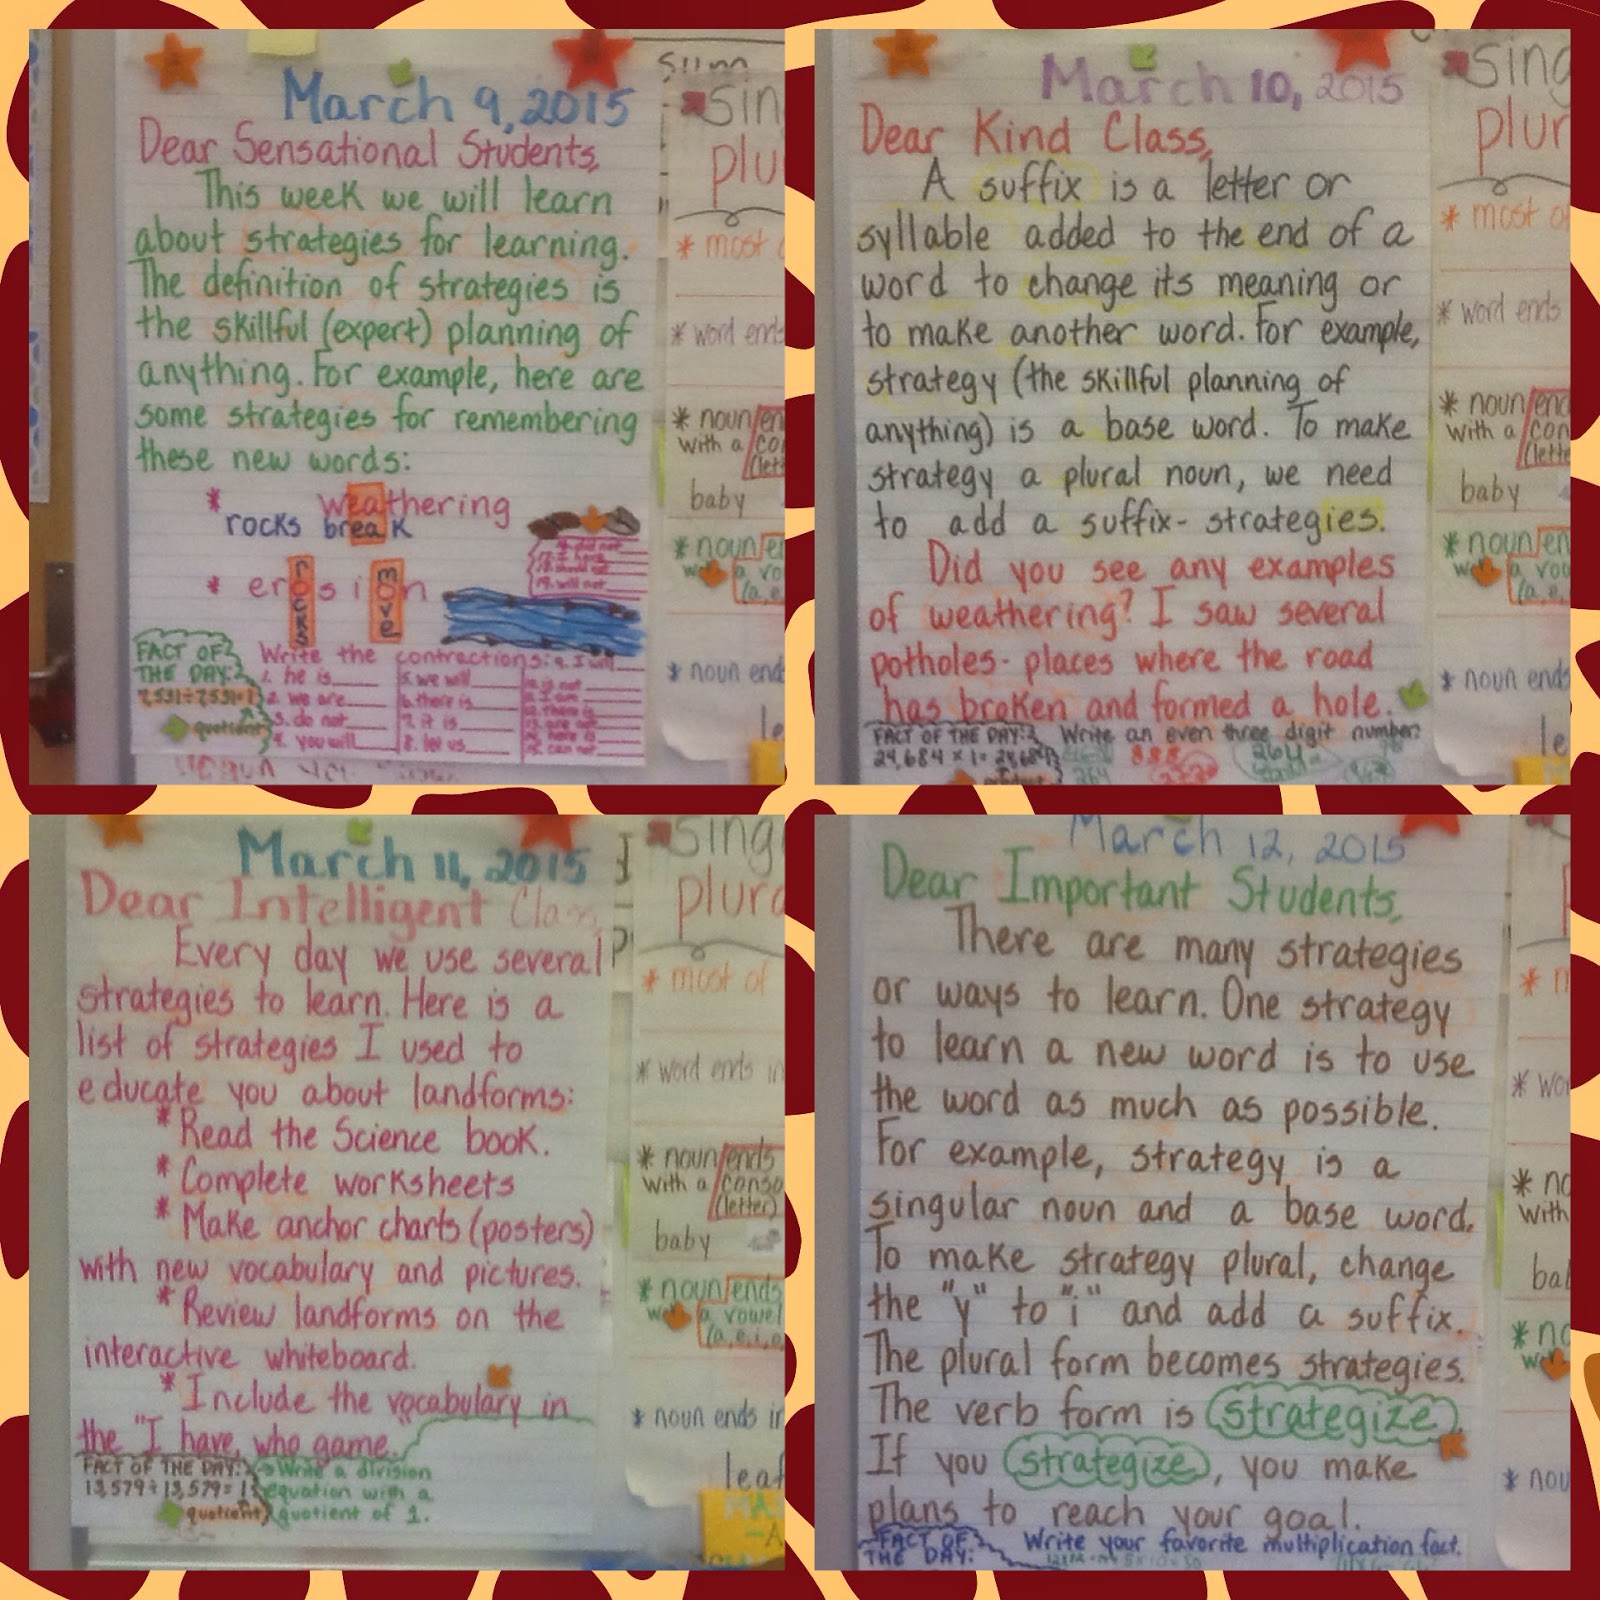 March 9, 2015
Dear Sensational Students,
This week we will learn
about strategies for learning.
The definition of strategies is
the skillful (expert) planning of
anything. For example, here are
some strategies for remembering
these new words:
* weathering
rocks break
* erosion
rocks
move
FACT OF
THE DAY:
7,531÷7,531=1
quotient
Write the contractions:
1. he is
2. we are
3. do not
4. you will
5. we will
6. there is
7. it is
8. let us
9. I will
10. is not
11. I am
13. are not
14. here is
15. can not
16. did not
17. I have
18. should not
19. will not
sing
plu
* most
* word ends
* noun en
with a co
(lett
baby
* noun en
a vo
(a,e,
* noun end
le
March 10, 2015
Dear Kind Class,
A suffix is a letter or
syllable added to the end of a
word to change its meaning or
to make another word. For example,
strategy (the skillful planning of
anything) is a base word. To make
strategy a plural noun, we need
to add a suffix- strategies.
Did you see any examples
of weathering? I saw several
potholes- places where the road
has broken and formed a hole.
FACT OF THE DAY:
24,684 x 1= 24,684
product
Write an even three digit number:
888
264
sing
plur
* most of
* word ends
* noun end
with a con
(lette
baby
* noun en
a vow
(a,e,
* noun ends
le
March 11, 2015
Dear Intelligent Class,
Every day we use several
strategies to learn. Here is a
list of strategies I used to
educate you about landforms:
* Read the Science book.
* Complete worksheets
* Make anchor charts (posters)
with new vocabulary and pictures.
* Review landforms on the
interactive whiteboard.
* Include the vocabulary in
the "I have, who game.
FACT OF THE DAY:
13,579÷13,579=1
quotient
Write a division
equation with a
quotient of 1.
sing
plura
* most of
* word ends in
* noun ends
with a conso
(letter)
baby
* noun ends
a vowel
(a,e,i,o
* noun ends in
leaf
March 12, 2015
Dear Important Students,
There are many strategies
or ways to learn. One strategy
to learn a new word is to use
the word as much as possible.
For example, strategy is a
singular noun and a base word.
To make strategy plural, change
the "y" to "i" and add a suffix.
The plural form becomes strategies.
The verb form is strategize.
If you strategize, you make
plans to reach your goal.
FACT OF
THE DAY:
Write your favorite multiplication fact.
* m
* wo
* no
with
bab
* no
* nou